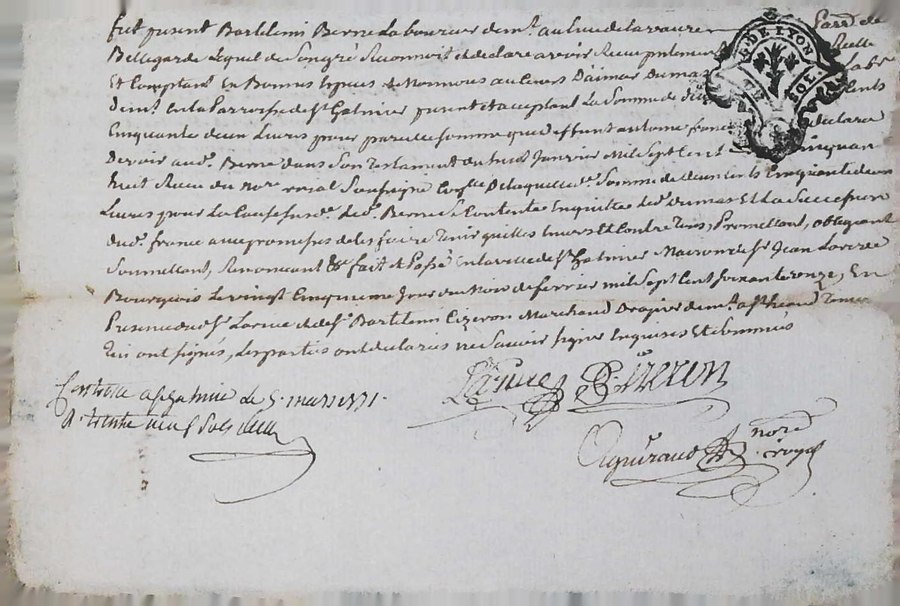 fut present Bartelemi Berne Laboureur dem.t au lieu de Laraure parr.e de
Bellegarde Lequel de Son gré Reconnoit et declare avoir Recu
Et Comptant En Bonnes Especes de Monnoies au Cours D'aimar Dumas
dem.t En la Parroisse de S.t Galmier present et acceptant La Somme de cents
Cinquante deux Livres pour pareille somme que deffunt antoine france declare
Devoir aud. Berne dans Son Testament du huit Janvier Mil Sept Cent Cinquan
huit Recu du no.re royal Soussigné De laquelle Somme de deux cents Cinquante deux
Livres pour La Cause Susd. led. Berne Se Contente En quitte led. dumas Et La Succession
dud. france avec promesses de les faire Tenir quittes Envers Et Contre Tous, Promettant, obligeant
Soumettant, Renonceant &c fait et Passé En la ville de S.t Galmier Maison de S.r Jean Larue
Bourgeois Le vingt Cinquieme Jour du Mois de fevrier mil Sept Cent soixante onze, En
Presence dud. S.r Larue et de S.r Bartelemi Cizeron Marchand Drapier dem.t
Qui ont signés, Les parties ont declarées ne Savoir signer Enquises Et Sommées
Larue Cizeron
Controllé a S.t Galmier Le 5 mars 1771
R. trente neuf Sols
nore.
royal
G. DE LYON
SOL.